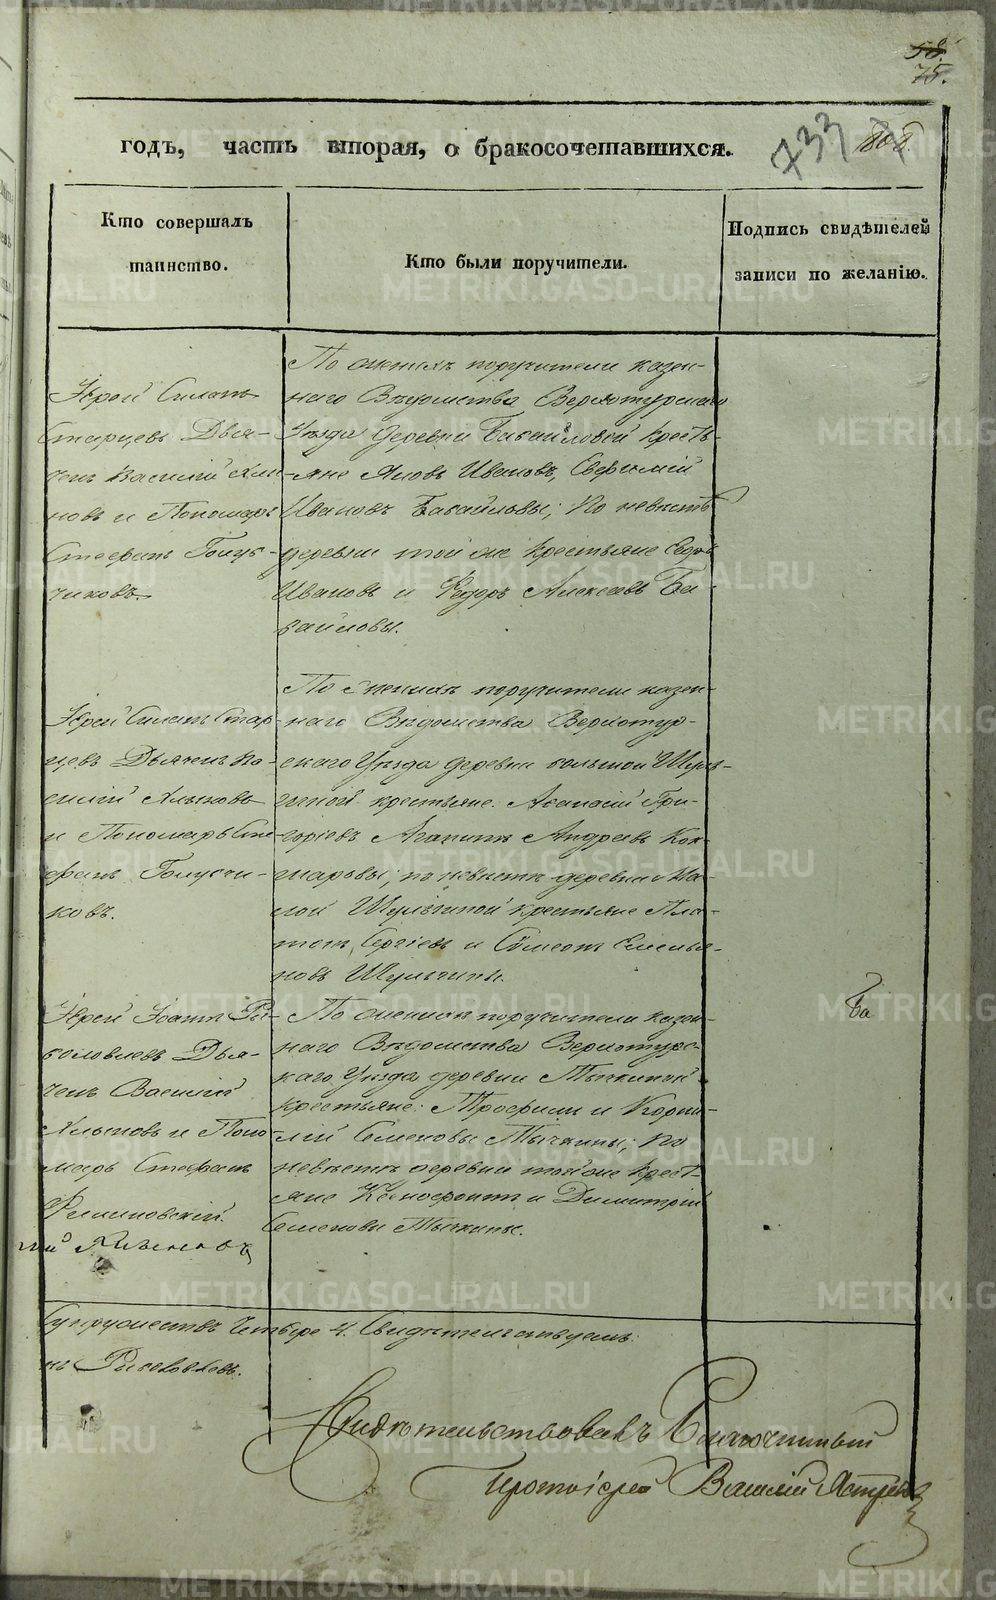 58.
75.
годъ, часть вторая, о бракосочетавшихся.
733
Кто совершалъ
таинство.
Кто были поручители.
Подпись свидѣтелей
записи по желанію.
Іерей
Старцевъ Дья-
чекъ Василій
новъ и Пономарь
Стефанъ Голуб-
чиковъ.
По женихѣ поручители казен-
наго Вѣдомства Верхотурскаго
Уѣзда деревни Бабайловой кресть-
яне Яковъ Ивановъ, Евфимій
Ивановъ Бабайловы; По невѣстѣ
деревни той же крестьяне
Ивановъ и Федоръ Алексѣевъ Ба-
байловы.
Іерей Стар-
цевъ Дьячекъ Ва-
силій Хлыновъ
и Пономарь Сте-
фанъ Голубчи-
ковъ.
По женихѣ поручители казен-
наго Вѣдомства Верхотур-
скаго Уѣзда деревни большой Шуль-
гиной крестьяне: Афанасій Гри-
горіевъ Агапитъ Андреевъ Ком-
таровы; по невѣстѣ деревни Ма-
лой Шульгиной крестьяне Пла-
тонъ Сергіевъ и Симеонъ Емелья-
новъ Шульгины.
Іерей Іоаннъ Ры-
боловлевъ Дья-
чекъ Василій
Хлыновъ и Поно
марь Стефанъ
По женихѣ поручители казен-
наго Вѣдомства Верхотурс-
каго Уѣзда деревни Тычкиной
крестьяне: Трофимъ и Корни-
лій Семеновы Тычкины; По
невѣстѣ деревни той же крест-
яне Ксенофонтъ и Димитрій
Семеновы Тычкины.
Ба
Супружествъ Четыре 4. Свидѣтельствуемъ:
нъ Рыболовлевъ.
Свидѣтельствовалъ Благочинный
Протоіерей Василій
METRIKI.GASO-URAL.RU